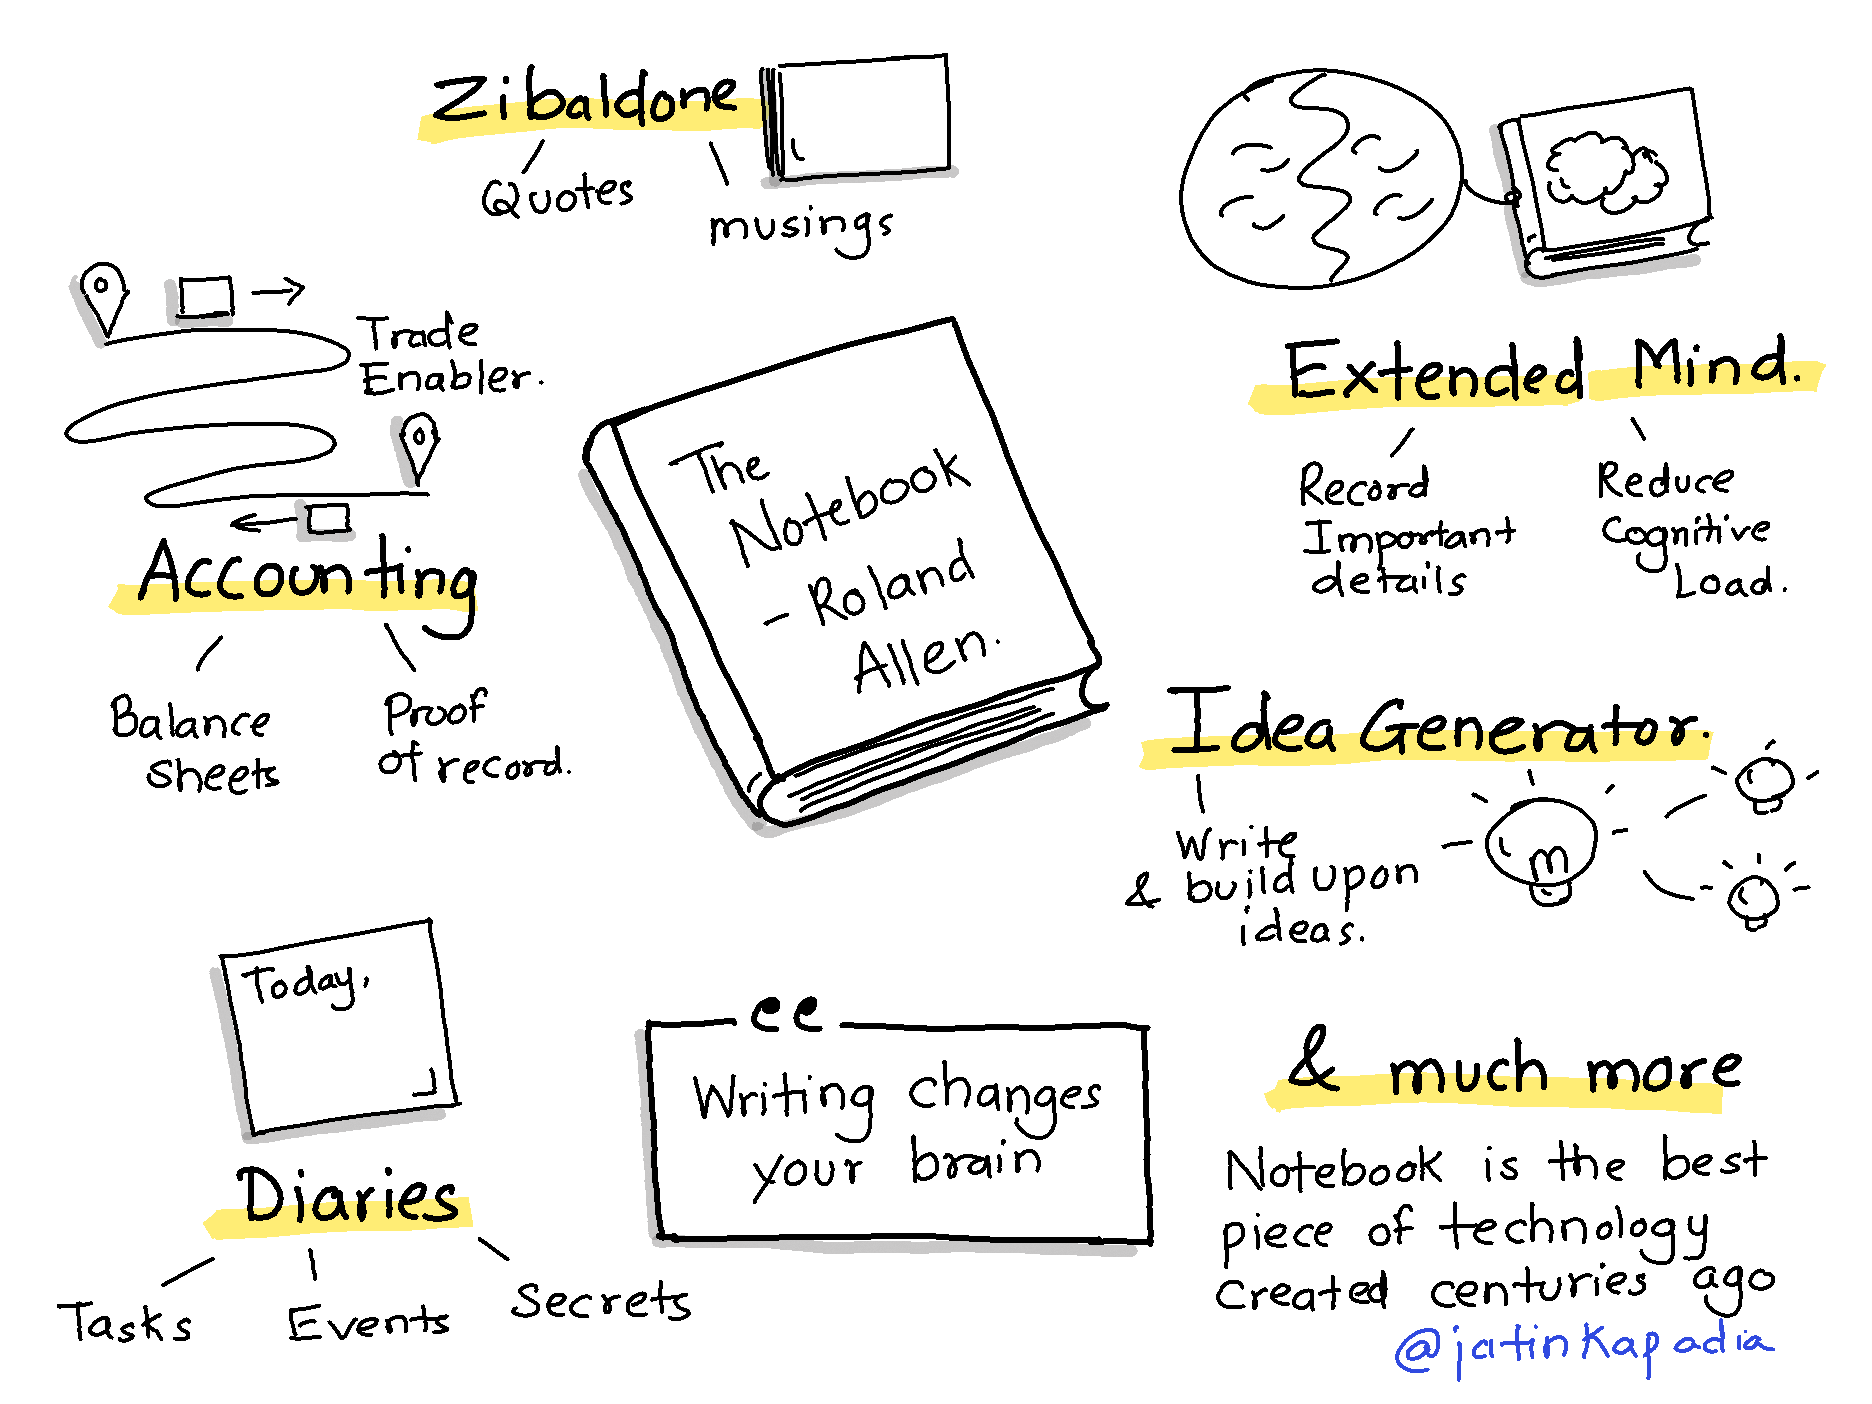 Zibaldone
Quotes
musings
Trade
Enabler.
Accounting
Balance
Sheets
Proof
of record.
The
Notebook
- Roland
Allen.
Extended Mind.
Record
Important
details
Reduce
Cognitive
Load.
Idea Generator.
Write
& build upon
ideas.
Today,
Diaries
Tasks
Events
Secrets
“
Writing changes
your brain
& much more
Notebook is the best
piece of technology
Created centuries ago
@jatinkapadia